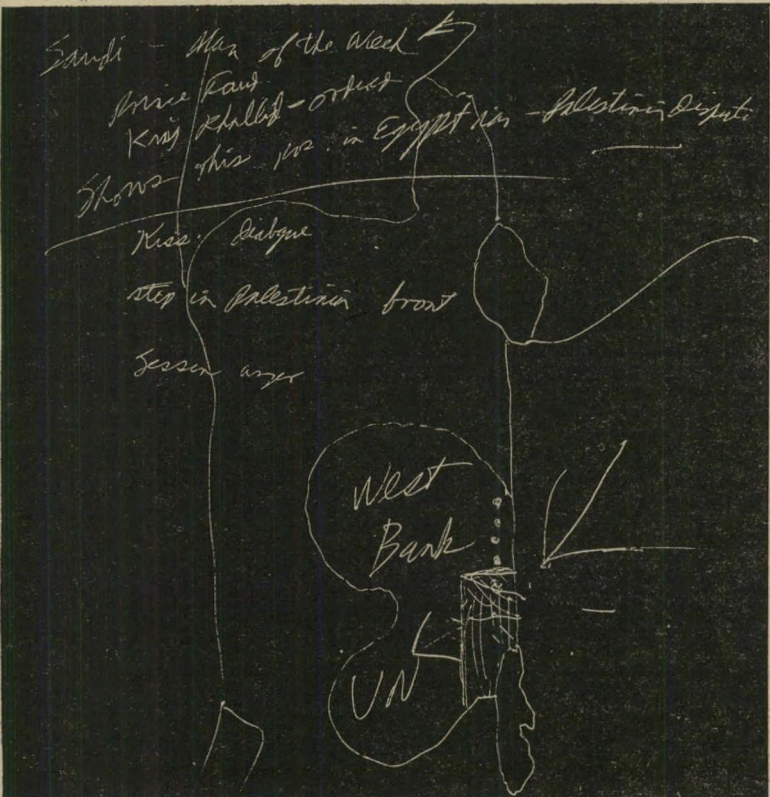 Saudi - Man of the Week
Prince Faud
King Khallid - ordered
Shows this pos. in Egyptian - Palestinian Dispute
Kiss. Dialogue
step in Palestinian front
West
Bank
UN